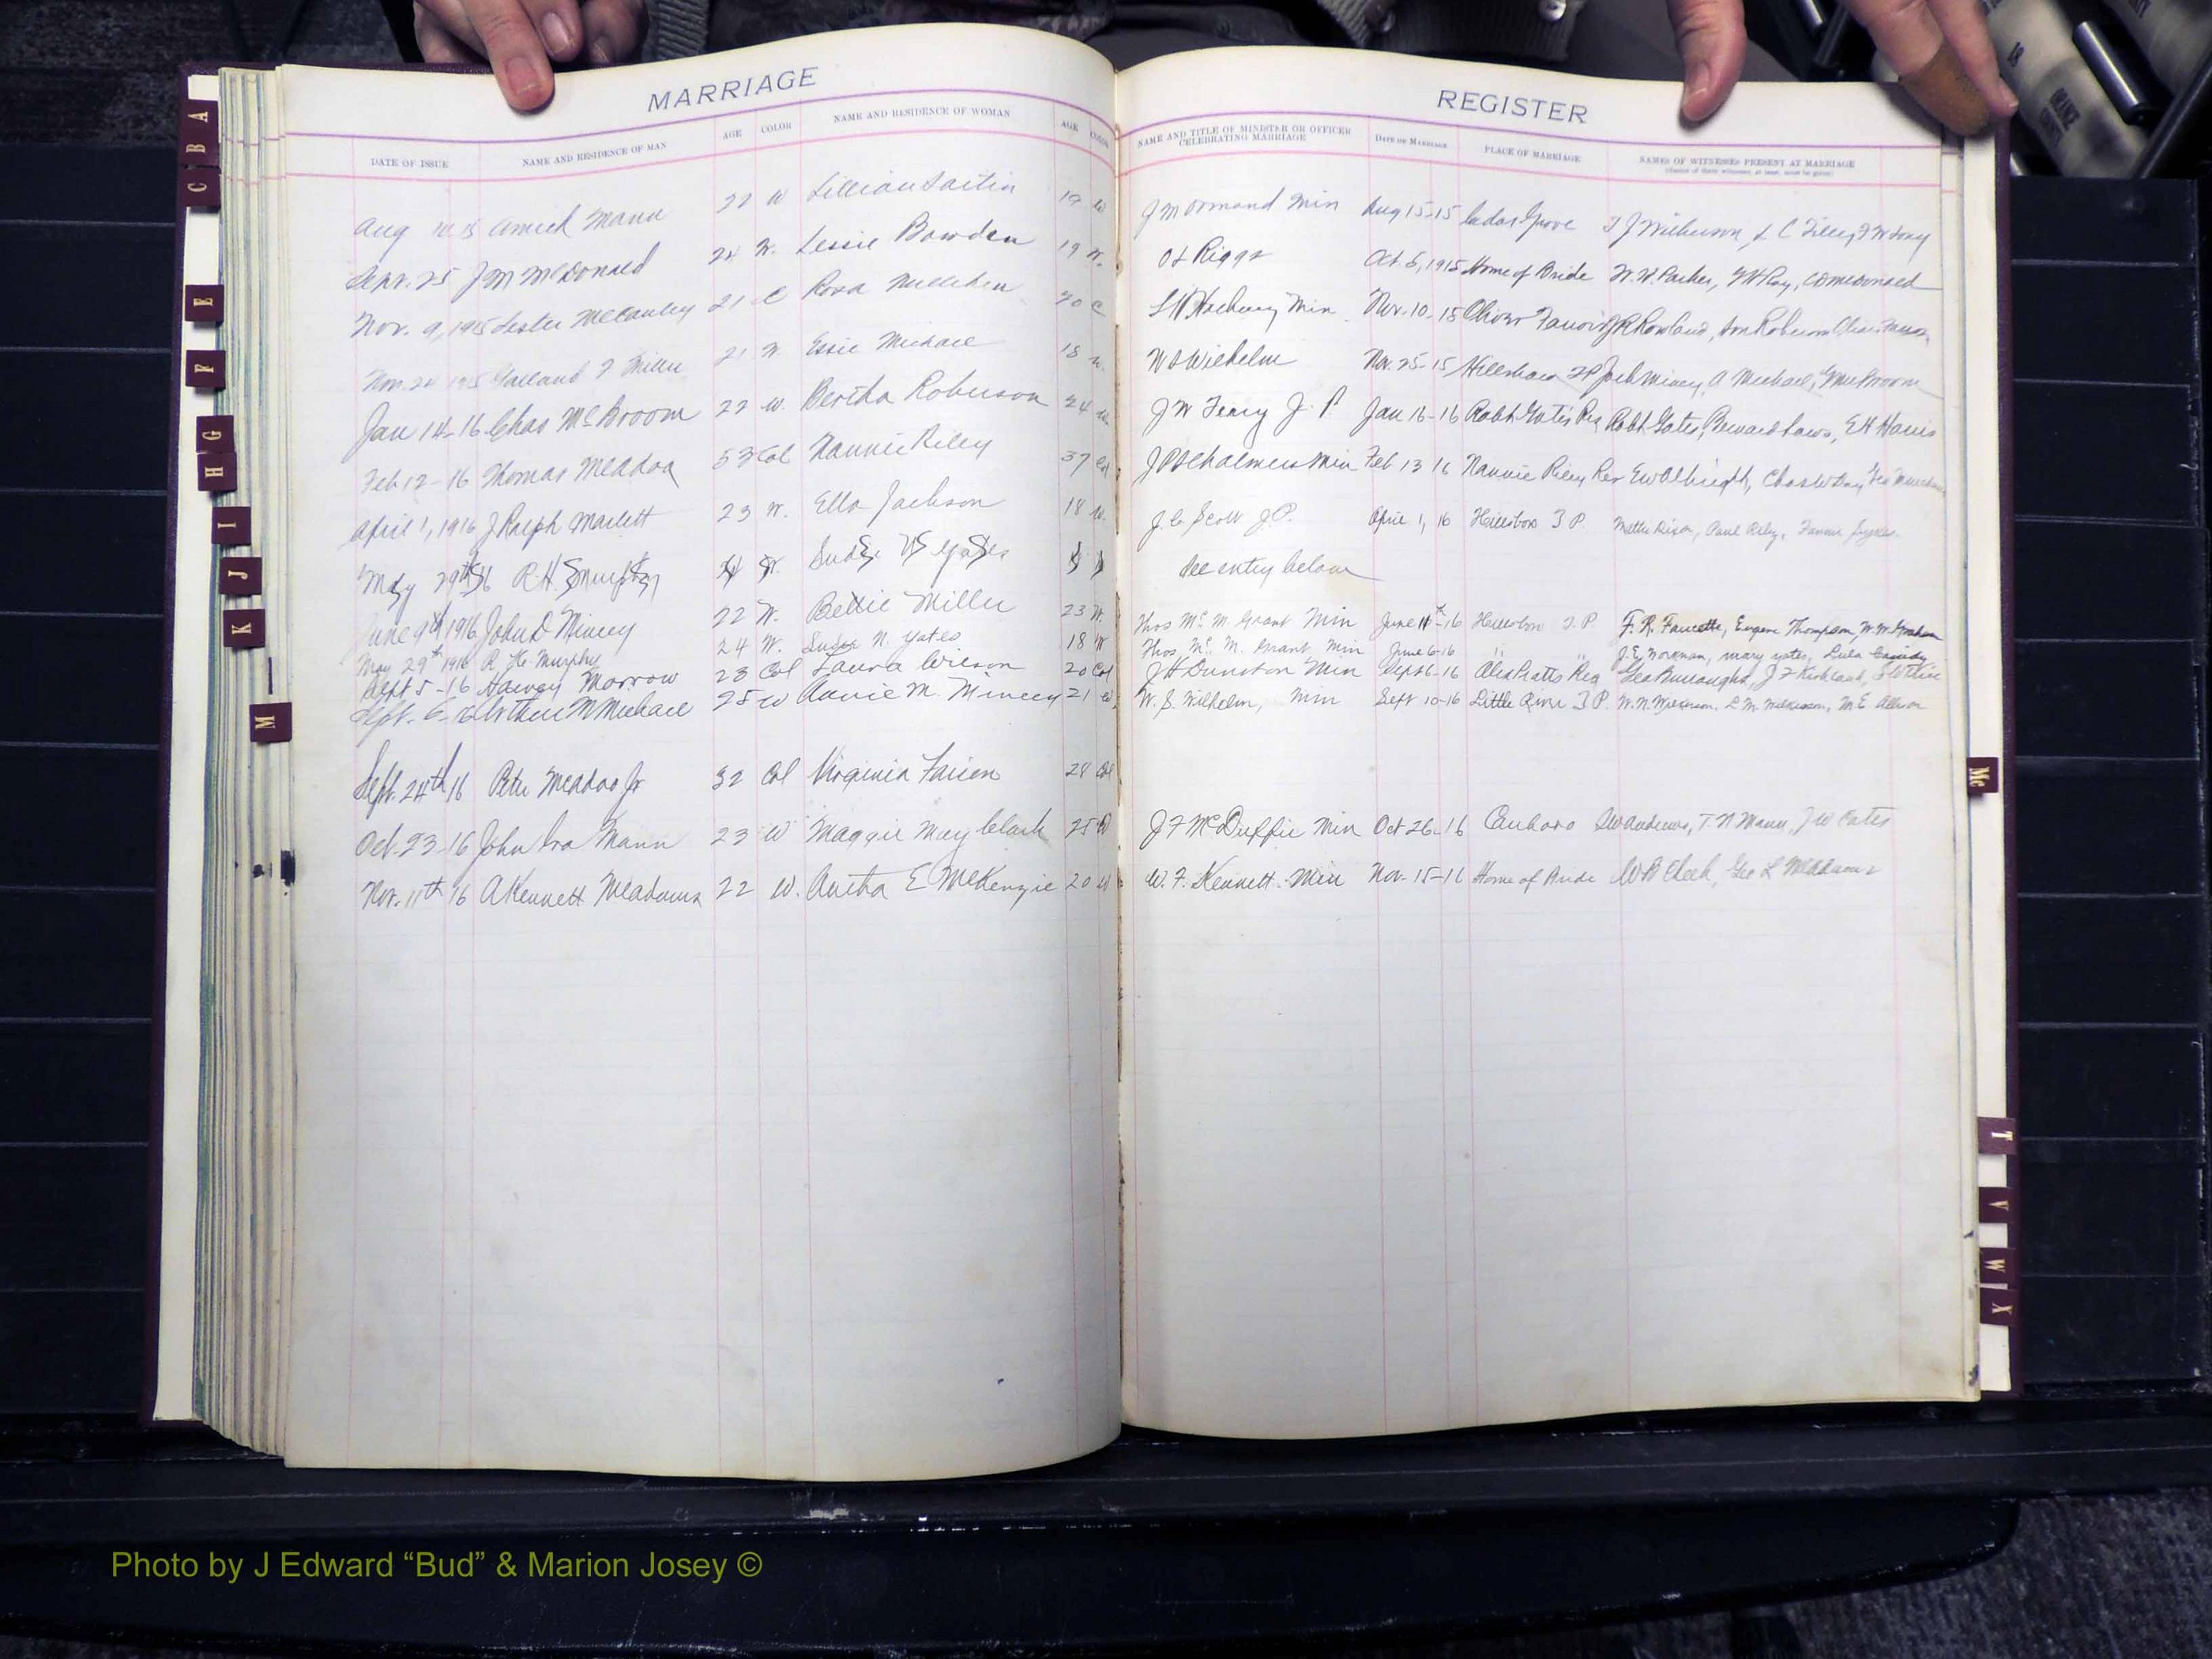 MARRIAGE
DATE OF ISSUE NAME AND RESIDENCE OF MAN AGE COLOR NAME AND RESIDENCE OF WOMAN AGE COLOR
Aug 15 Amick Mann 22 W Lillian 19 W
Sept. 25 J M McDonald 24 W. Lessie Bowden 19 W.
Nov. 9, 1915 Lester McCauley 21 C Rosa Milliken 20 C
Nov. 24 1915 Garland Miller 21 W. Essie Michael 18 W.
Jan 14-16 Chas McBroom 22 W. Bertha Roberson 24 W
Feb 12-16 Thomas McAdoo 53 Col Nannie Riley 37 Col
April 1, 1916 J Ralph Marlett 23 W. Ella Jackson 18 W.
May 29th 16 R. H. Murphy W. Yates
June 9th 1916 John D Mincey 22 W. Bettie Miller 23 W.
May 29th 1916 R. H. Murphy 24 W. N. Yates 18 W
Sept 5-16 Harvey Morrow 23 Col Laura Wilson 20 Col
Sept. 6-16 Arthur M Michael 25 W Annie M. Mincey 21 W.
Sept. 24th 16 Pete McAdoo Jr 32 Col Virginia Faison 28 Col
Oct-23-16 John Ira Mann 23 W Maggie May Clark 25 W
Nov. 11th 16 A Kennett Meadows 22 W. Anitha E McKenzie 20 W
REGISTER
NAME AND TITLE OF MINISTER OR OFFICER CELEBRATING MARRIAGE DATE OF MARRIAGE PLACE OF MARRIAGE NAMES OF WITNESSES PRESENT AT MARRIAGE
J M Ormand Min Aug 15-15 Cedar Grove T J Wilkerson, L C Tilley,
O L Riggs Oct 5, 1915 Home of Bride W. H. Parker, Ray, McDonald
Min. Nov-10-15 Oliver J R Rowland,
W S Wilhelm Nov. 25-15 Hillsboro Mincey, A Michael, McBroom
J W Terry J. P. Jan 16-16 Robt Gates Res Robt Gates, Bernard Laws, E H Harris
Min Feb 13 16 Nannie Riley Res E W Albright, Chas W Day,
J. C. Scott J.P. April 1, 16 Hillsboro Mattie Dixon, Paul Riley,
See entry below
Thos Mc. M. Grant Min June 11th-16 Hillsboro F. R. Faucette, Eugene Thompson, W. W. Graham
Thos. Mc. M. Grant Min June 6-16 " " J. E. Workman, Mary Yates, Lula
J H Dunston Min Sept 6-16 Res Geo Burroughs, J F Kirkland,
W. S. Wilhelm, Min Sept 10-16 Little River W. N. Wilkerson, L. M. Wilkerson, M E Allison
J F McDuffie Min Oct 26-16 Carrboro Andrews, T. N Mann, J W Cates
W. F. Kennett Min Nov-15-16 Home of Bride W B Cheek, Geo L Meadows
A
B
C
E
F
G
H
I
J
K
M
Mc
T
V
W
X
Photo by J Edward “Bud” & Marion Josey ©